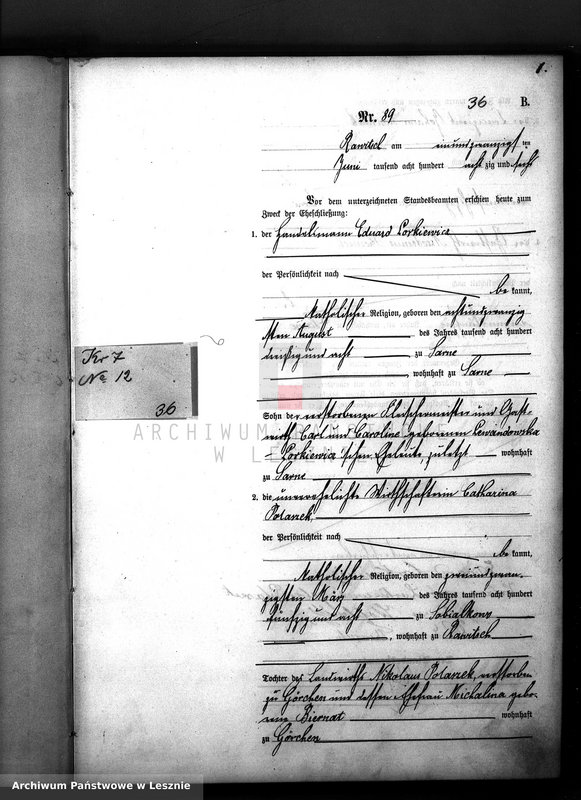 1.
36 B.
Nr. 89
Rawitsch am einundzwanzigs ten
Juni tausend acht hundert acht zig und sechs
Vor dem unterzeichneten Standesbeamten erschien heute zum
Zweck der Eheschließung:
1. der Handelsmann Eduard Porkiewicz
der Persönlichkeit nach
be kannt,
katholischer Religion, geboren den achtundzwanzig
sten August des Jahres tausend acht hundert
dreißig und acht zu Sarne
, wohnhaft zu Sarne
Sohn der verstorbenen Fleischermeister und Gast-
wirth Carl und Caroline geborenen Lewandowska
- Porkiewicz'schen Eheleute, zuletzt wohnhaft
zu Sarne
2. die unverehelichte Wirthschafterin Catharina
Polaszek,
der Persönlichkeit nach
be kannt,
katholischer Religion, geboren den zweiundzwan-
zigsten März des Jahres tausend acht hundert
fünfzig und acht zu Sobialkowo
, wohnhaft zu Rawitsch
Tochter des Landwirths Nikolaus Polaszek, verstorben
zu Görchen und dessen Ehefrau Michalina gebo-
rene Biernat wohnhaft
zu Görchen
Kr 7
No 12
36
ARCHIWUM PAŃSTWOWE
W LESZNIE
Archiwum Państwowe w Lesznie